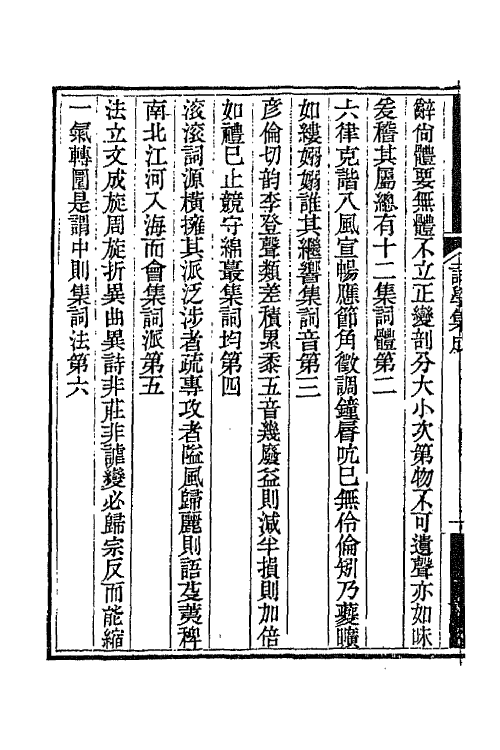 詞學集成
辭尙體要無體不立正變剖分大小次第物不可遺聲亦如味
爰稽其屬總有十二集詞體第二
六律克諧八風宣暢應節角徵調鐘脣吭巳無伶倫矧乃夔曠
如縷嫋嫋誰其繼響集詞音第三
彦倫切韵李登聲類差積累黍五音幾廢益則減半損則加倍
如禮巳止競守綿蕞集詞均第四
滚滚詞源横擁其派泛涉者疏專攻者隘風歸麗則語芟荑稗
南北江河入海而會集詞派第五
法立文成旋周旋折異曲異詩非莊非謔變必歸宗反而能縮
一氣轉圜是謂中則集詞法第六